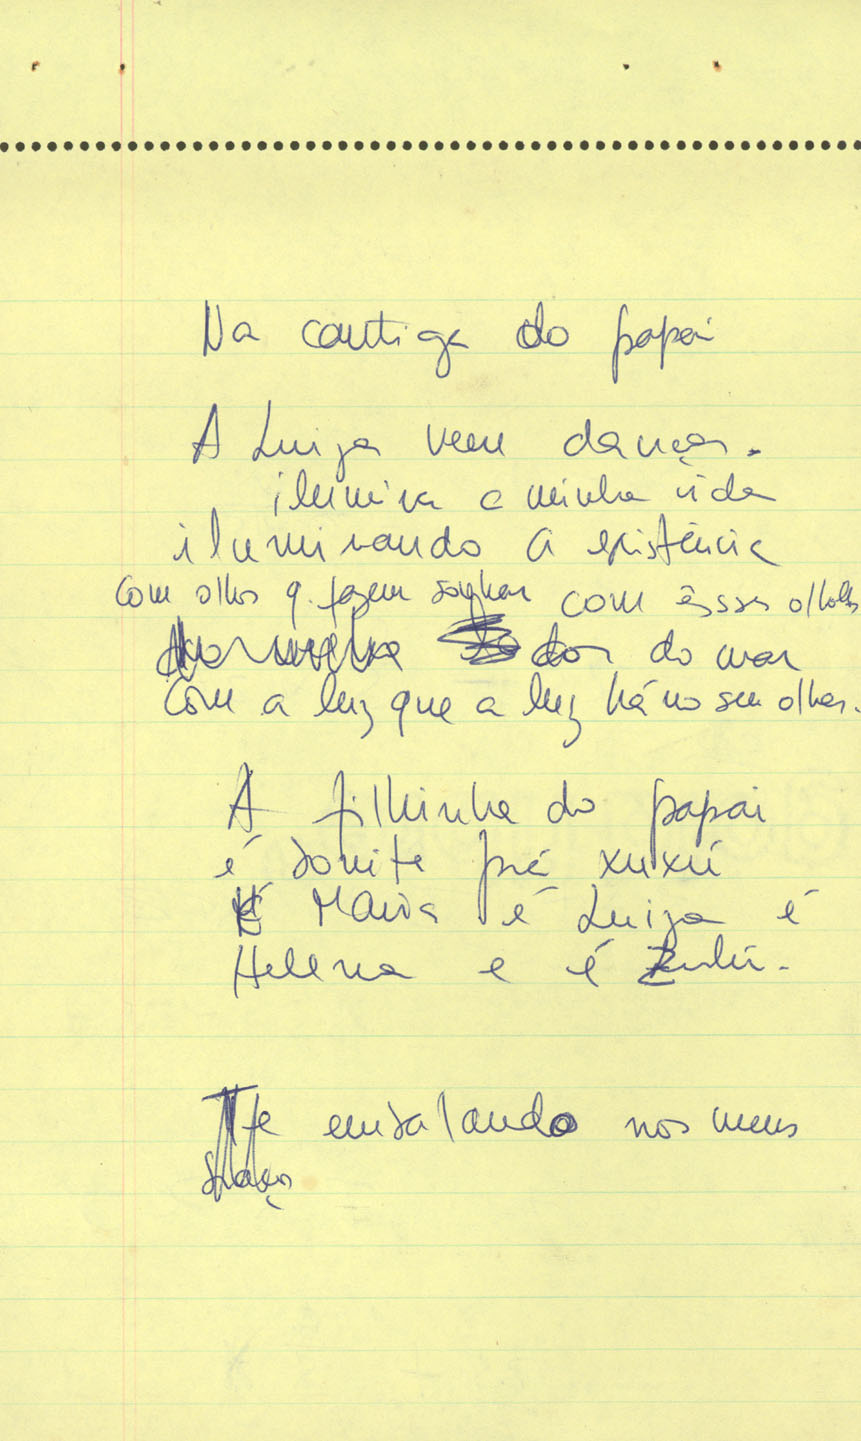 Na cantiga do papai
A Luiza vem dançar.
ilumina a minha vida
iluminando a existência
com olhos q. fazem sonhar com êsses olhos
cor do mar
Com a luz que a luz há no seu olhar.
A filhinha do papai
é bonita prá xuxú
É Maria é Luiza é
Helena e é Zulú.
Te embalando nos meus
braços